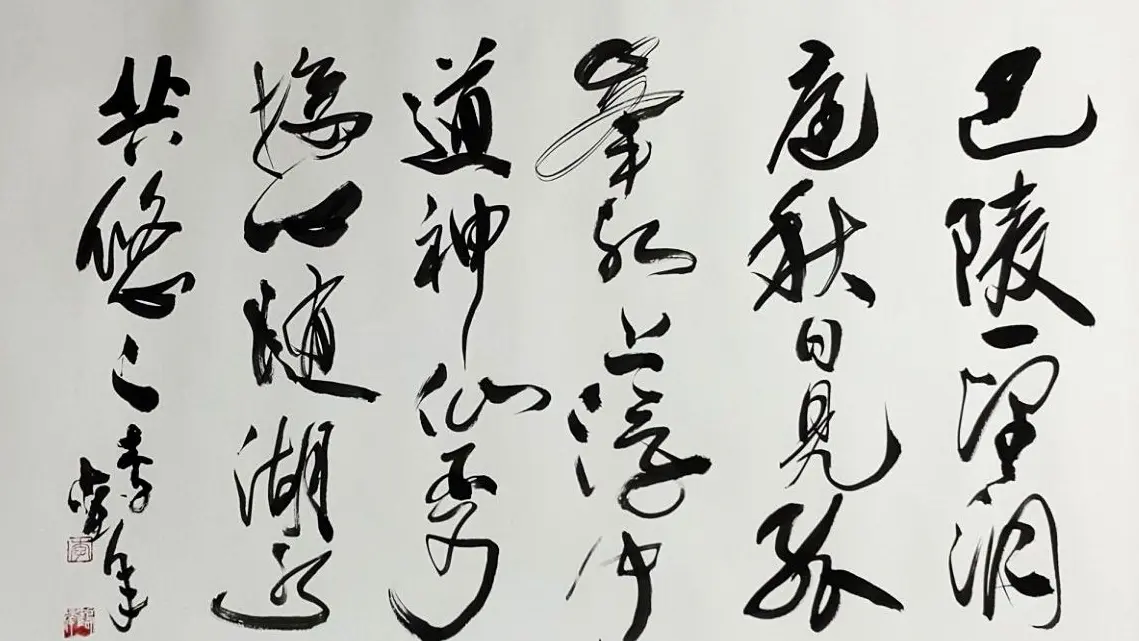 巴陵一望洞
庭秋日見孤
峯水上浮闻
道神仙不可
接心随湖水
共悠々